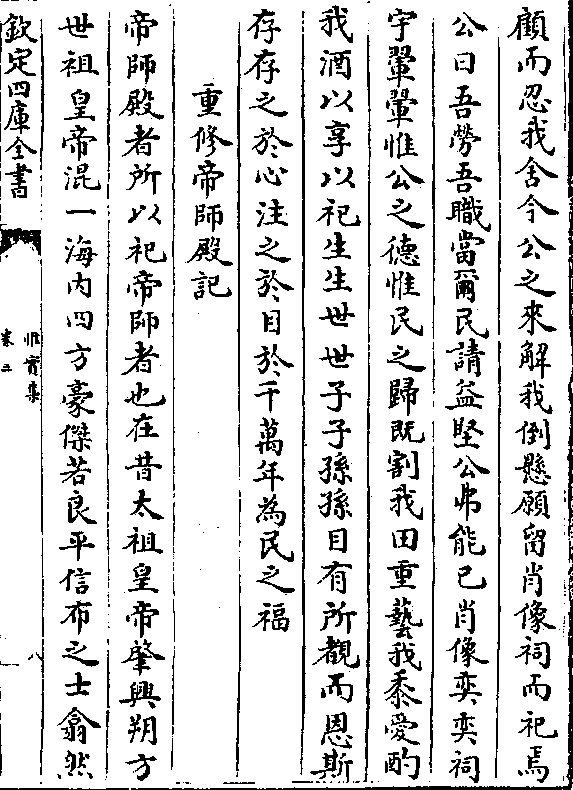 顧而忍我舍今公之來解我倒懸願留肖像祠而祀焉
公曰吾勞吾職當爾民請益堅公弗能已肖像奕奕祠
宇翬翬惟公之德惟民之歸既割我田重藝我黍爰酌
我酒以享以祀生生世世子子孫孫目有所觀而恩斯
存存之於心注之於目於千萬年為民之福
重修帝師殿記
帝師殿者所以祀帝師者也在昔太祖皇帝肇興朔方
世祖皇帝混一海内四方豪傑若良平信布之士翕然
欽定四庫全書
惟實集
卷三
八